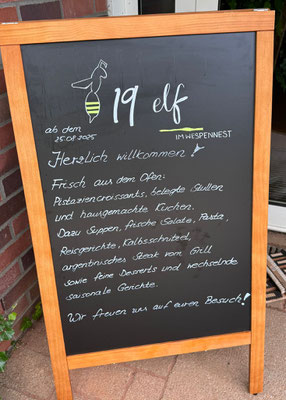 19 elf
IM WESPENNEST
ab dem
25.08.2025
Herzlich willkommen!
Frisch aus dem Ofen:
Pistaziencroissants, belegte Stullen
und hausgemachte Kuchen.
Dazu Suppen, frische Salate, Pasta,
Reisgerichte, Kalbsschnitzel,
argentinisches Steak vom Grill
sowie feine Desserts und wechselnde
saisonale Gerichte.
Wir freuen uns auf euren Besuch!